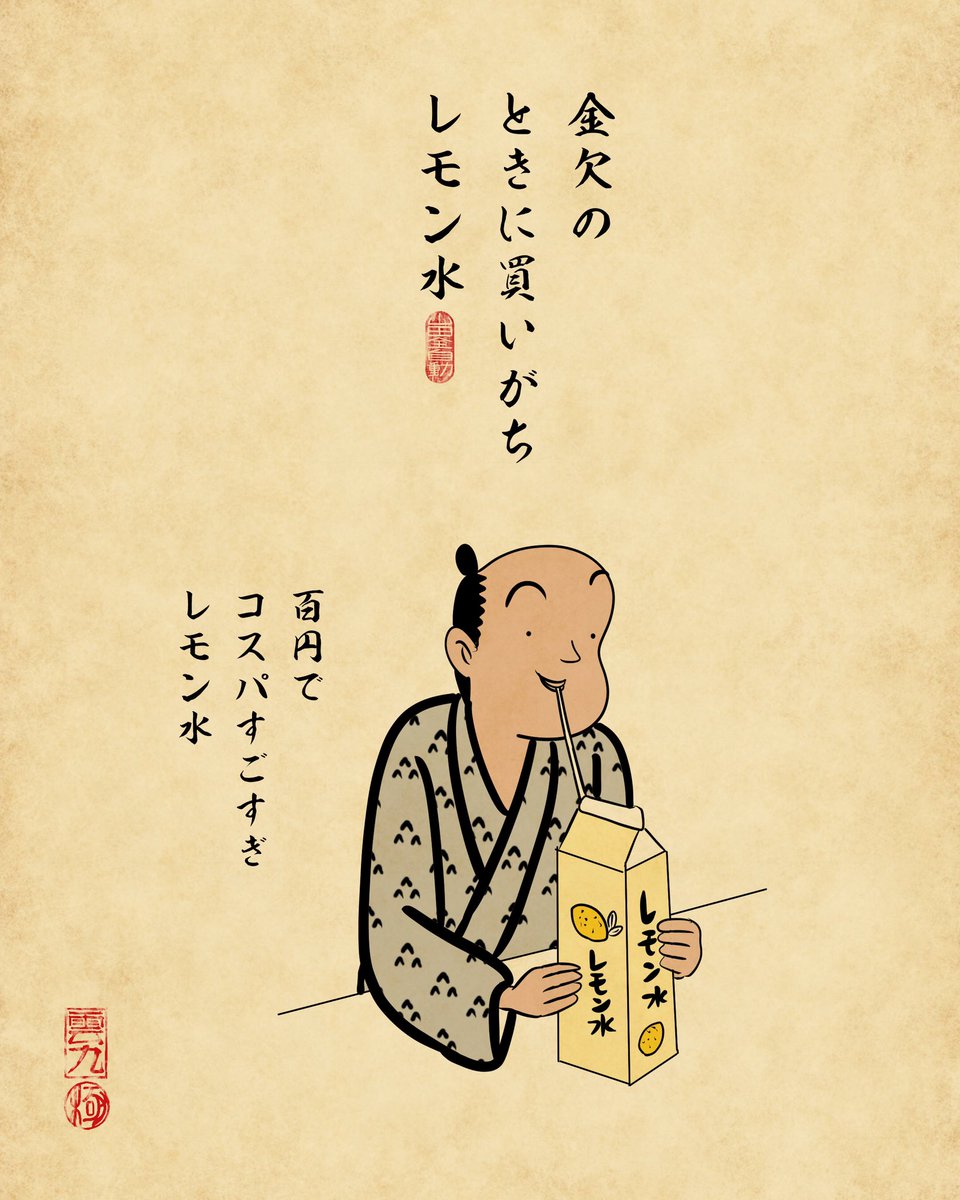 金欠の
ときに買いがち
レモン水
百円で
コスパすごすぎ
レモン水
レモン水
レモン水